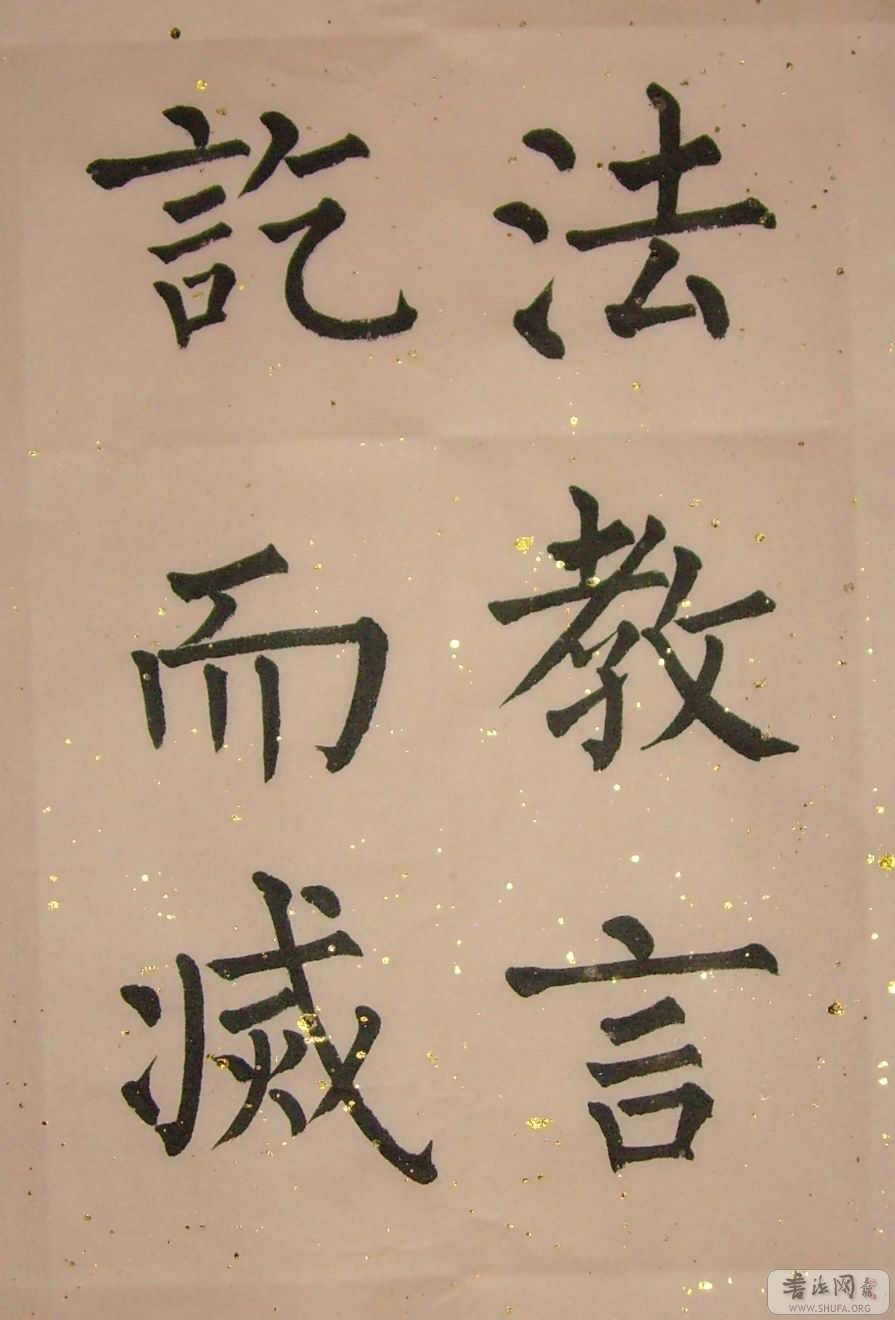 法教言
訖而滅
书法网
WWW.SHUFA.ORG